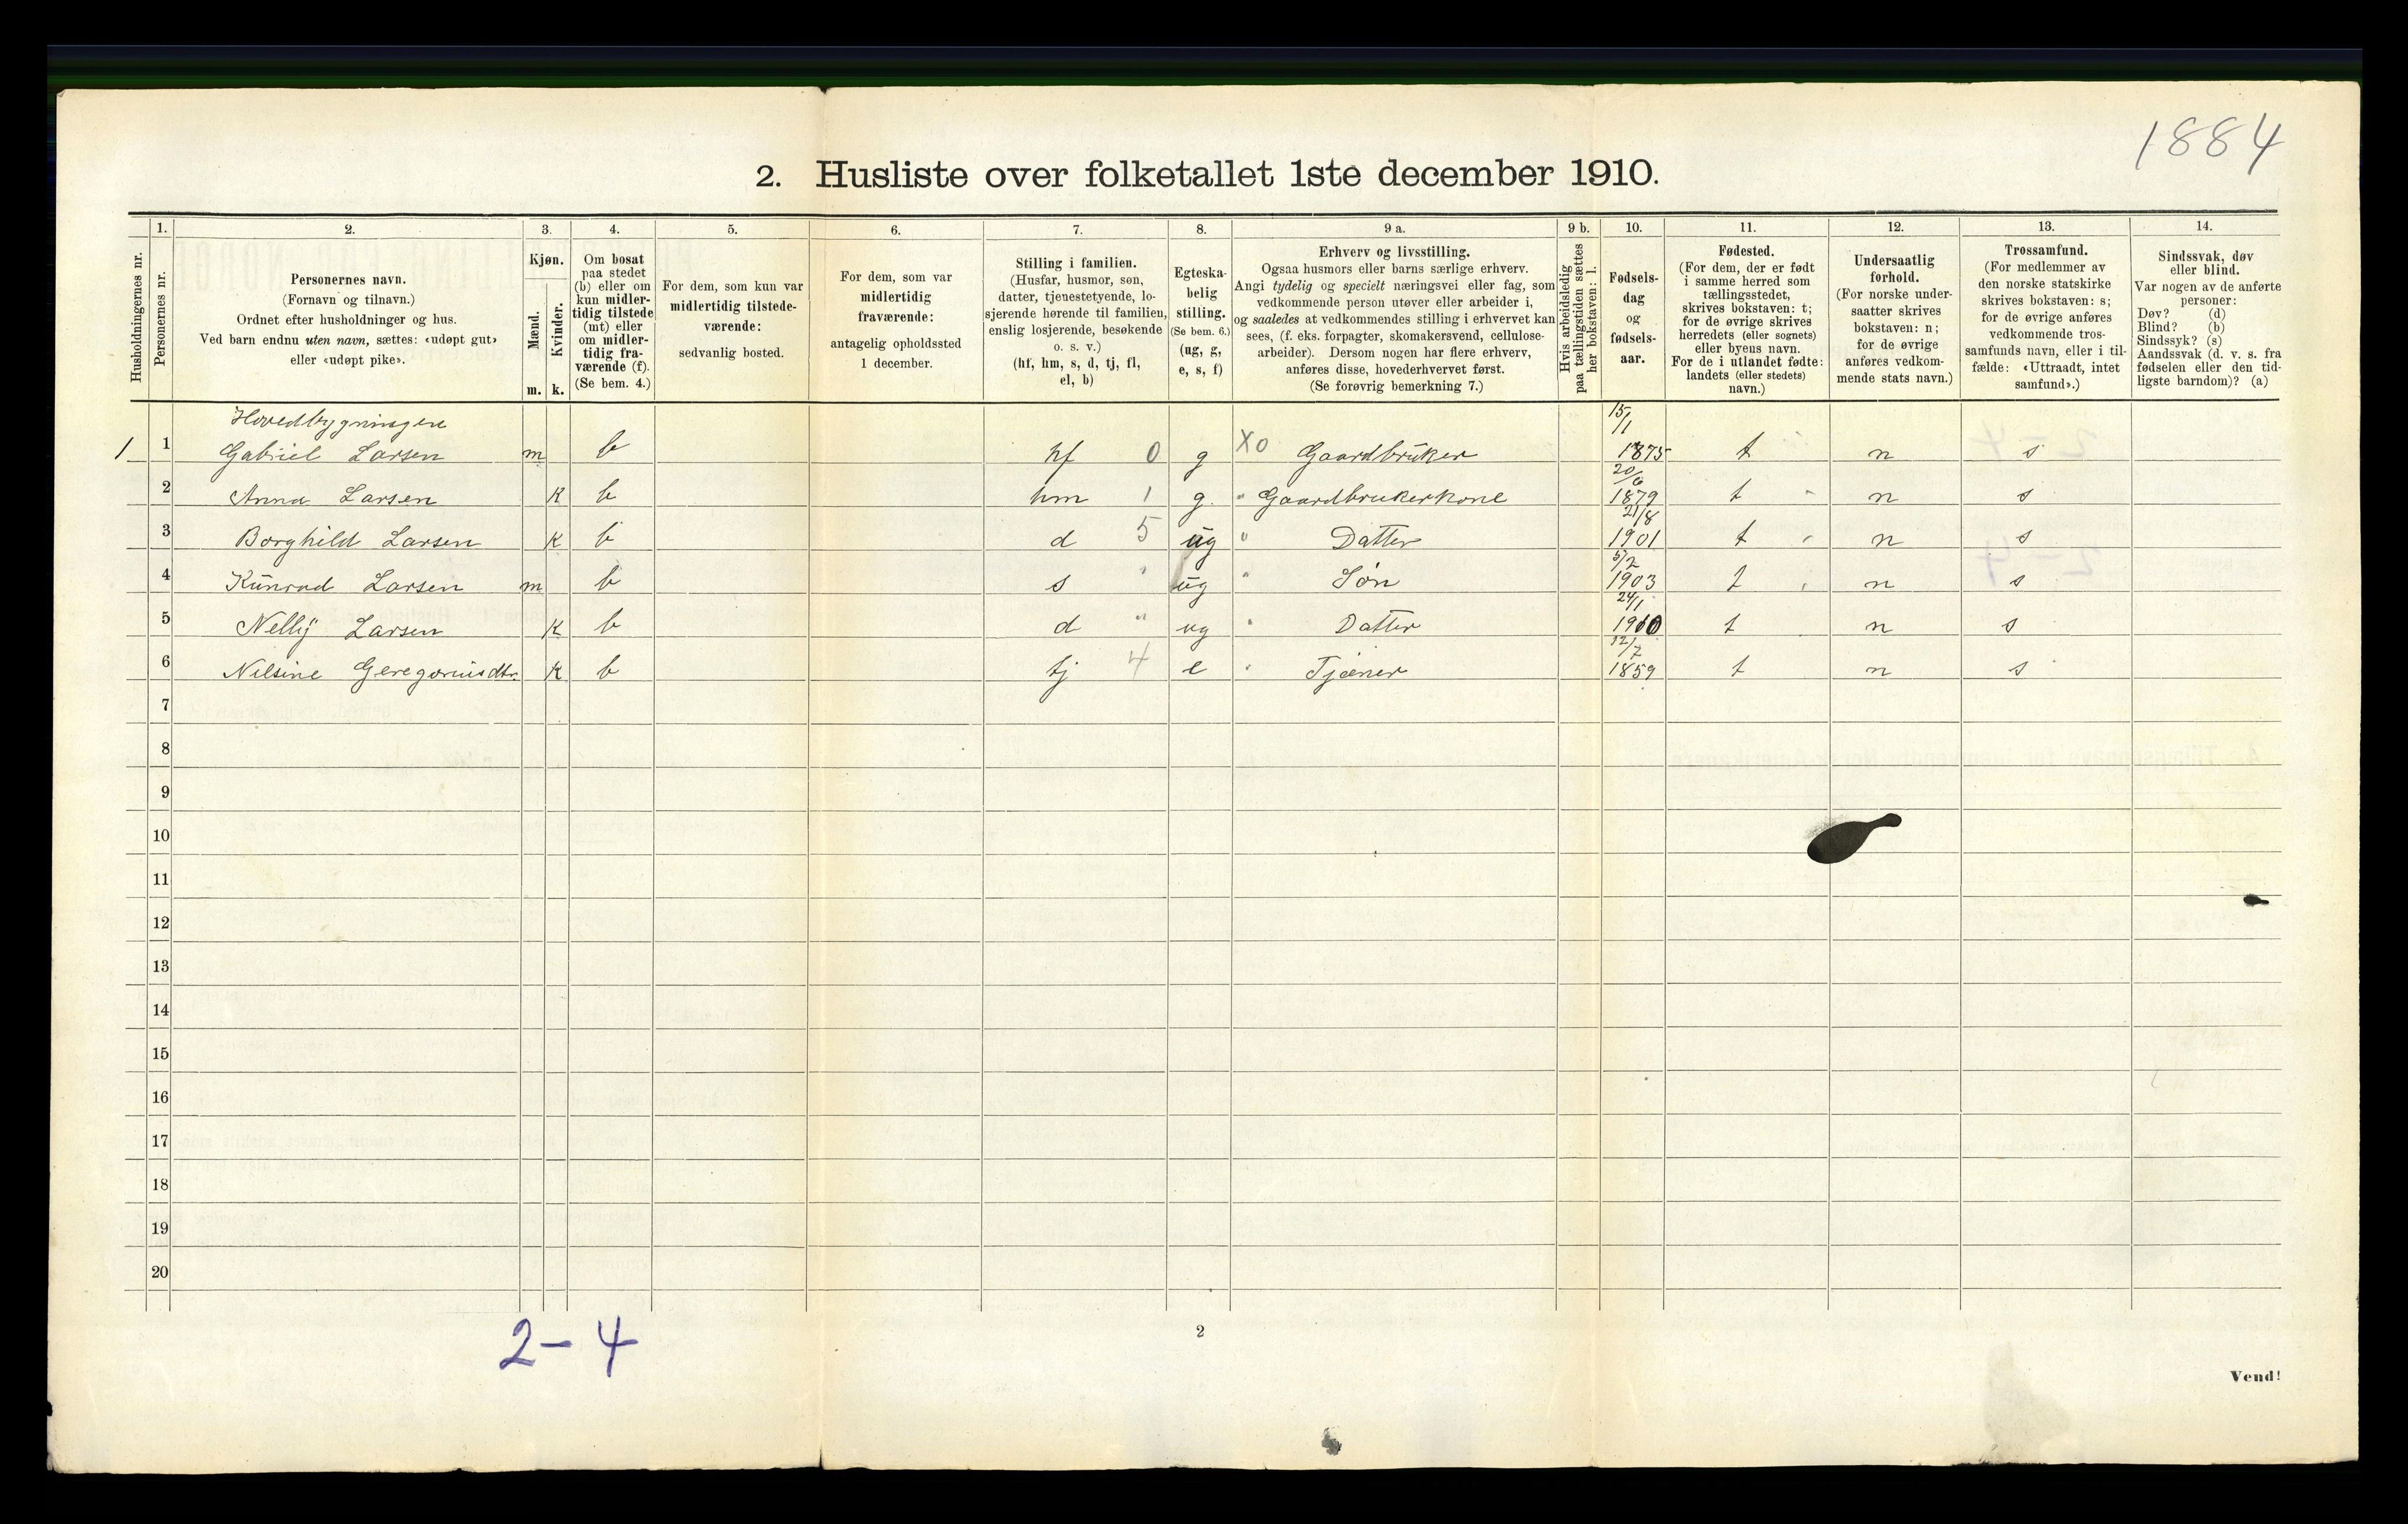 1884
2. Husliste over folketallet 1ste december 1910.
Husholdningernes nr.
1.
Personernes nr.
2.
Personernes navn.
(Fornavn og tilnavn.)
Ordnet efter husholdninger og hus.
Ved barn endnu uten navn, sættes: «udøpt gut»
eller «udøpt pike».
3.
Kjøn.
Mænd.
m.
Kvinder.
k.
4.
Om bosat
paa stedet
(b) eller om
kun midler-
tidig tilstede
(mt) eller
om midler-
tidig fra-
værende (f).
(Se bem. 4.)
5.
For dem, som kun var
midlertidig tilstede-
værende:
sedvanlig bosted.
6.
For dem, som var
midlertidig
fraværende:
antagelig opholdssted
1 december.
7.
Stilling i familien.
(Husfar, husmor, søn,
datter, tjenestetyende, lo-
sjerende hørende til familien,
enslig losjerende, besøkende
o. s. v.)
(hf, hm, s, d, tj, fl,
el, b)
8.
Egteska-
belig
stilling.
(Se bem. 6.)
(ug, g,
e, s, f)
9 a.
Erhverv og livsstilling.
Ogsaa husmors eller barns særlige erhverv.
Angi tydelig og specielt næringsvei eller fag, som
vedkommende person utøver eller arbeider i,
og saaledes at vedkommendes stilling i erhvervet kan
sees, (f. eks. forpagter, skomakersvend, cellulose-
arbeider). Dersom nogen har flere erhverv,
anføres disse, hovederhvervet først.
(Se forøvrig bemerkning 7.)
9 b.
Hvis arbeidsledig
paa tællingstiden sættes
her bokstaven: l.
10.
Fødsels-
dag
og
fødsels-
aar.
11.
Fødested.
(For dem, der er født
i samme herred som
tællingsstedet,
skrives bokstaven: t;
for de øvrige skrives
herredets (eller sognets)
eller byens navn.
For de i utlandet fødte:
landets (eller stedets)
navn.)
12.
Undersaatlig
forhold.
(For norske under-
saatter skrives
bokstaven: n;
for de øvrige
anføres vedkom-
mende stats navn.)
13.
Trossamfund.
(For medlemmer av
den norske statskirke
skrives bokstaven: s;
for de øvrige anføres
vedkommende tros-
samfunds navn, eller i til-
fælde: «Uttraadt, intet
samfund».)
14.
Sindssvak, døv
eller blind.
Var nogen av de anførte
personer:
Døv? (d)
Blind? (b)
Sindssyk? (s)
Aandssvak (d. v. s. fra
fødselen eller den tid-
ligste barndom)? (a)
Hovedbygningen
1 1 Gabriel Larsen m b hf 0 g X0 Gaardbruker 15/1 1875 t n s
2 Anna Larsen K b hm 1 g. " Gaardbrukerkone 20/6 1879 t n s
3 Borghild Larsen K b d 5 ug " Datter 21/8 1901 t n s
4 Kunrad Larsen m b s " ug " Søn 5/2 1903 t n s
5 Nelly Larsen K b d " ug " Datter 24/1 1910 t n s
6 Nilsine Geregoriusdtr. K b tj 4 e " Tjæner 12/7 1859 t n s
7
8
9
10
11
12
13
14
15
16
17
18
19
20
2-4
2
Vend!